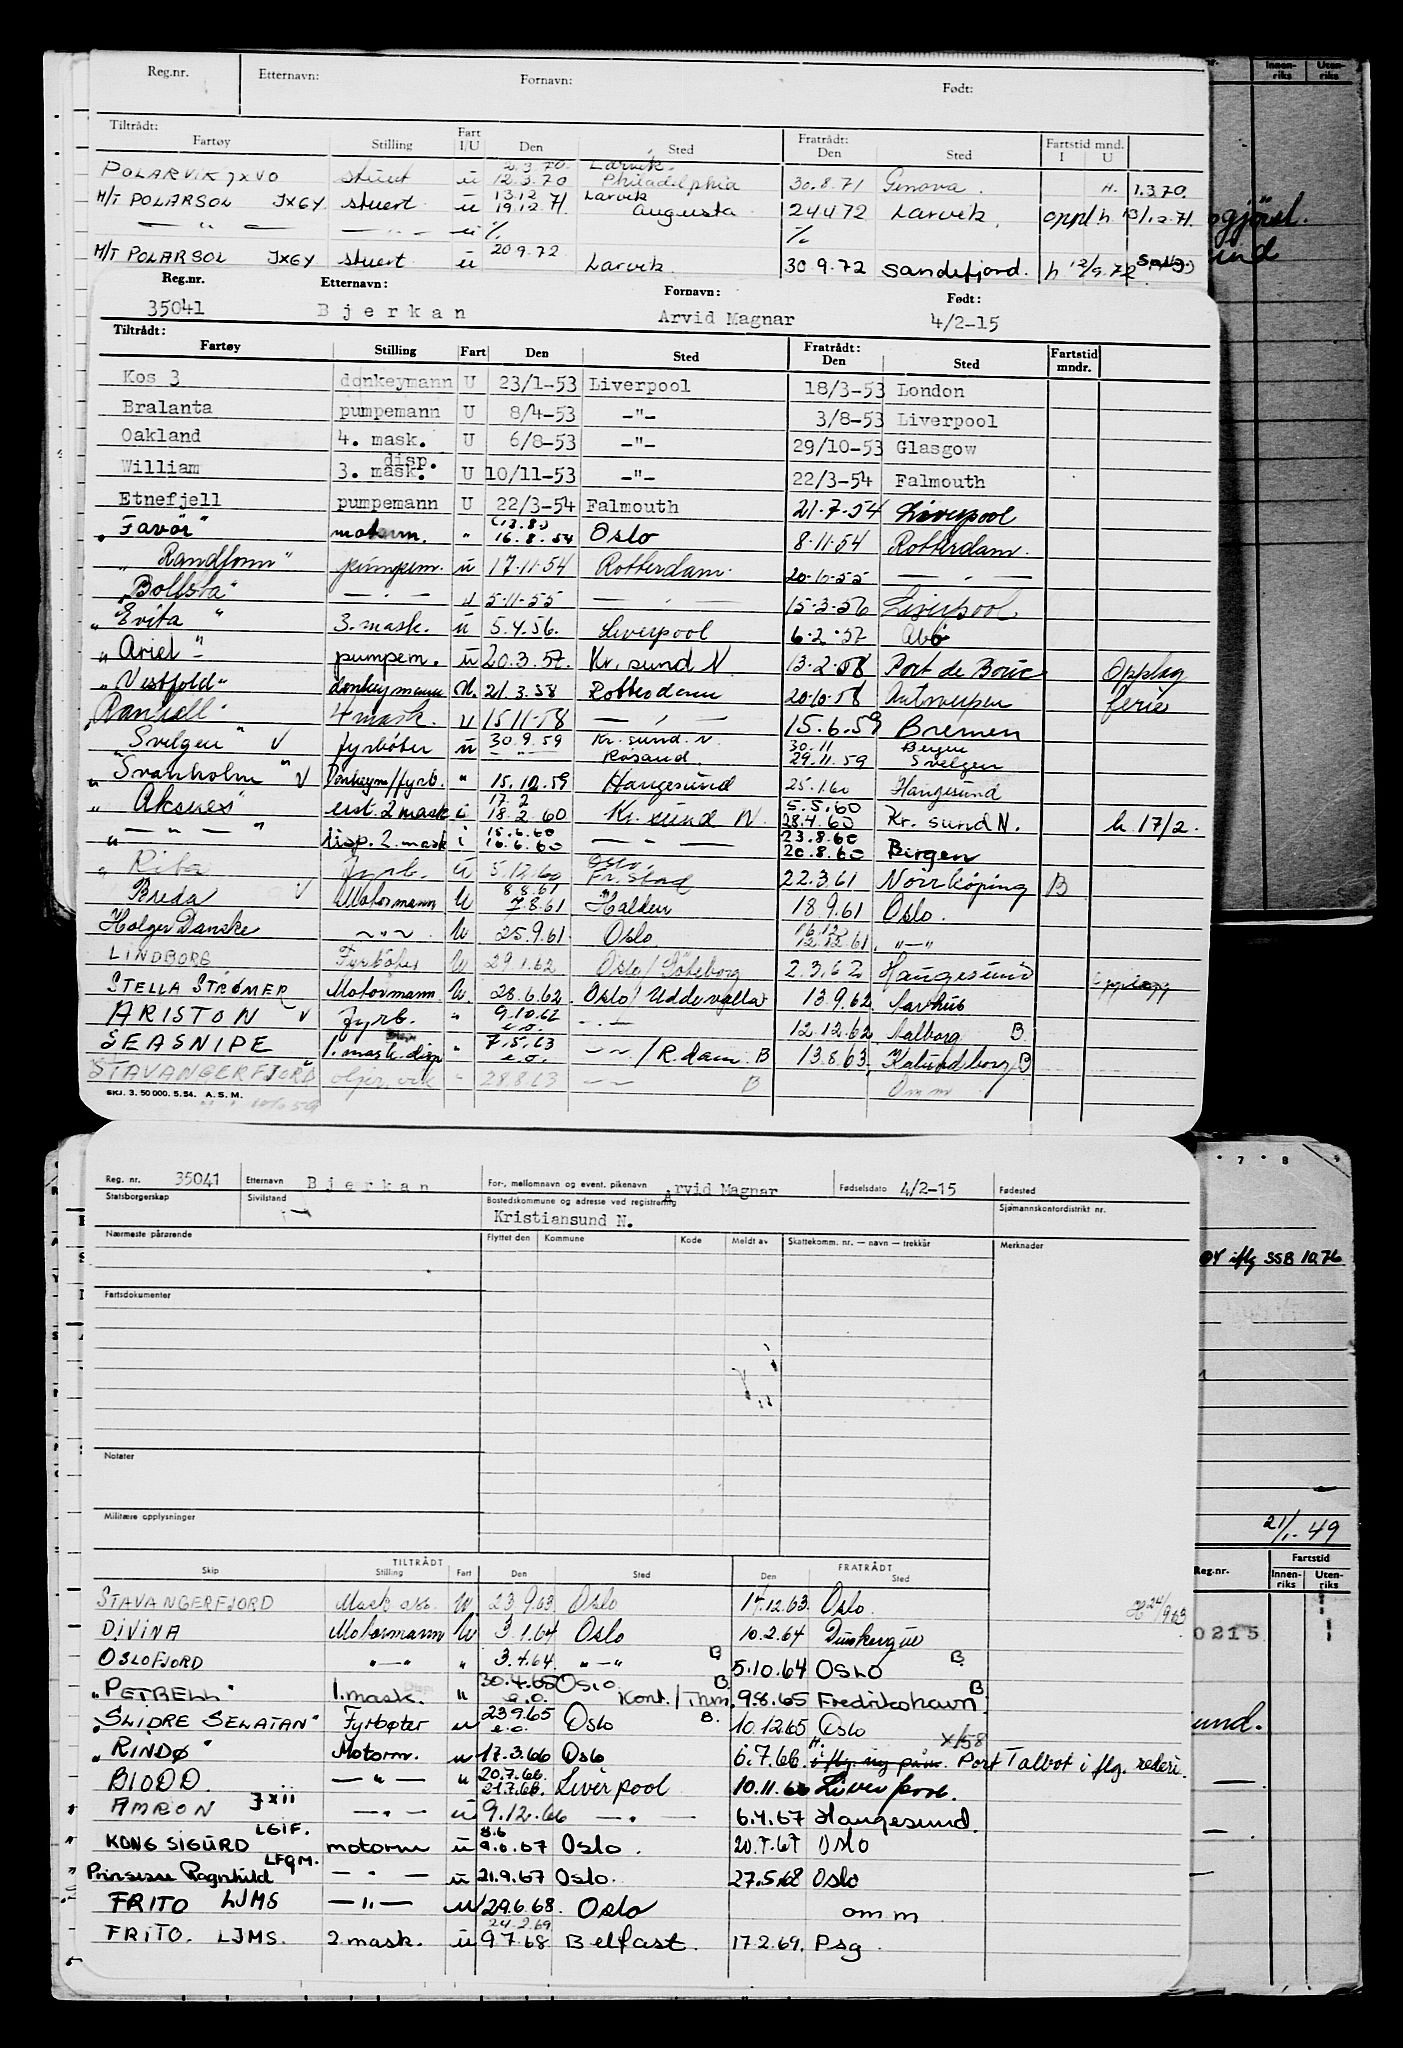 Reg.nr. Etternavn: Fornavn: Født:
Tiltrådt: Fratrådt:
Fartøy Stilling Fart I/U Den Sted Den Sted Fartstid mnd. I U
POLARVIK JXVO stuert u 2.3.70 12.3.70 Larvik. Philadelphia 30.8.71 Genova. H. 1.3.70.
M/T POLARSOL JXGY. stuert. u 13.12 19.12.71. Larvik Augusta 24.4.72 Larvik. oppl h 13/12.71.
— " — — " — u % %
M/T POLARSOL JXGY stuert u 20.9.72 Larvik. 30.9.72 Sandefjord. h 12/9.72
Reg.nr. Etternavn: Fornavn: Født:
35041 Bjerkan Arvid Magnar 4/2-15
Tiltrådt: Fratrådt:
Fartøy Stilling Fart Den Sted Den Sted Fartstid mndr.
Kos 3 donkeymann U 23/1-53 Liverpool 18/3-53 London
Bralanta pumpemann U 8/4-53 -"- 3/8-53 Liverpool
Oakland 4. mask. U 6/8-53 -"- 29/10-53 Glasgow
William 3. mask. disp. U 10/11-53 -"- 22/3-54 Falmouth
Etnefjell pumpemann U 22/3-54 Falmouth 21.7.54 Liverpool
"Favör" " (13.8.) 16.8.54 Oslo 8.11.54 Rotterdam.
"Randfonn" pumpem. u 17.11.54 Rotterdam. 20.10.55 — " —
"Bollsta" — " — u 5.11.55 — " — 15.3.56 Liverpool.
"Evita" 3. mask. u 5.4.56. Liverpool 6.2.57 Abo
"Ariel" pumpem. u 20.3.57. Kr. sund N 13.2.58 Port de Bouc Opplag
"Vestfold" donkeymann U. 21.3.58 Rotterdam 20.10.58 Antwerpen ferie
"Ranhall" 4 mask. u 15.11.58 — " — 15.6.59 Bremen
"Svelgen" V fyrbøter u 30.9.59 Kr. sund. N. Rosand. 30.11 29.11.59 Bergen Svelgen
"Svanholm" V Donkeym/fyrb. " 15.12.59 Haugesund 25.1.60 Haugesund
"Aksnes" erst. 2 mask i 17.2 18.2.60 Kr. sund N. 5.5.60 28.4.60 Kr. sund N. h. 17/2.
" — " — " disp. 2. mask i 15.6.60 16.6.60 — " — 23.8.60 20.8.60 Bergen
Fyrb. U 5.12.60 Oslo. Fr.stad 22.3.61 Norrköping B
Breda V Motormann U 8.8.61 7.8.61 Halden 18.9.61 Oslo.
Holger Danske ~"~ U 25.9.61 Oslo 16.12 12.12.61 "—"
LINDBORG Fyrbøter U 29.1.62 Oslo/Göteborg 2.3.62 Haugesund
STELLA STRØMER Motormann U. 28.6.62. Oslo/Uddevalla 13.9.62 Aarhus
ARISTON V fyrb. " 9.10.62 e.o. — " — 12.12.62 Aalborg B.
SEASNIPE 1. mask. disp " 7.5.63 e.o. ~"~ /R.dam. B 13.8.63 Kalundborg B
STAVANGERFJORD " 28.8.63 ~"~ B Omm
SKJ. 3. 50 000. 5. 54. A. S. M.
Reg. nr. 35041 Etternavn Bjerkan For-, mellomnavn og event. pikenavn Arvid Magnar Fødselsdato 4/2-15 Fødested
Statsborgerskap Sivilstand Bostedskommune og adresse ved registrering Sjømannskontordistrikt nr.
Kristiansund N.
Nærmeste pårørende Flyttet den Kommune Kode Meldt av Skattekomm. nr. — navn — trekkår Merknader
Fartsdokumenter
Notater
Militære opplysninger
TILTRÅDT FRATRÅDT
Skip Stilling Fart Den Sted Den Sted
STAVANGERFJORD Mask ass. U 23.9.63 Oslo 14.12.63. Oslo. H 24/9.63
DIVINA Motormann U 3.1.64 Oslo 10.2.64 Dunkerque
OSLOFJORD "—" " 3.4.64 "—" B 5.10.64 OSLO B.
"PETRELL" 1. mask. " 30.4.65 e.o. Oslo B. Kont./Thm. 9.8.65 Fredrikshavn B
"SLIDRE SELATAN" Fyrbøter u 23.9.65 e.o. Oslo B. 10.12.65 Oslo
"RINDØ" Motorm. u 17.3.66 Oslo 6.7.66. Port Talbot iflg. rederi.
BIODD. — " — " 20.7.66. 21.7.66. Liverpool 10.11.66 Liverpool.
AMRON JXII — " — u 9.12.66 — " — 6.4.67 Haugesund.
KONG SIGURD LGIF. motorm u 8.6 9.6.67 Oslo. 20.7.67 Oslo
" Prinsesse Ragnhild LFQM. — " — u 21.9.67 Oslo. 27.5.68 Oslo
FRITO LJMS — " — u 29.6.68. Oslo omm
FRITO. LJMS. 2. mask. u 24.2.69 9.7.68 Belfast. 17.2.69. Psg.
Innenriks Utenriks
iflg SSB 10.76
21/1. 49
Reg.nr. Fartstid
Innenriks Utenriks
0215
und.